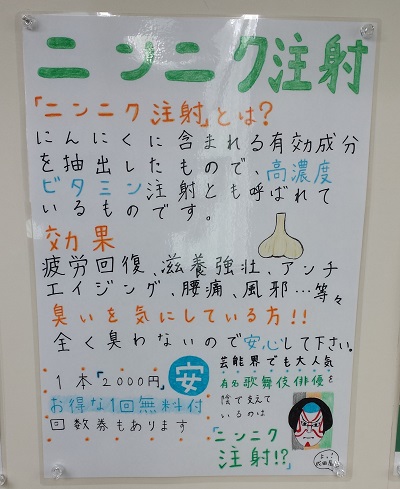 ニンニク注射
「ニンニク注射」とは?
にんにくに含まれる有効成分
を抽出したもので、高濃度
ビタミン注射とも呼ばれて
いるものです。
効果
疲労回復、滋養強壮、アンチ
エイジング、腰痛、風邪…等々
臭いを気にしている方!!
全く臭わないので安心して下さい。
1本「2000円」安
お得な1回無料付
回数券もあります
芸能界でも大人気
有名歌舞伎俳優を
陰で支えて
いるのは
「ニンニク
注射!?」
よっ!